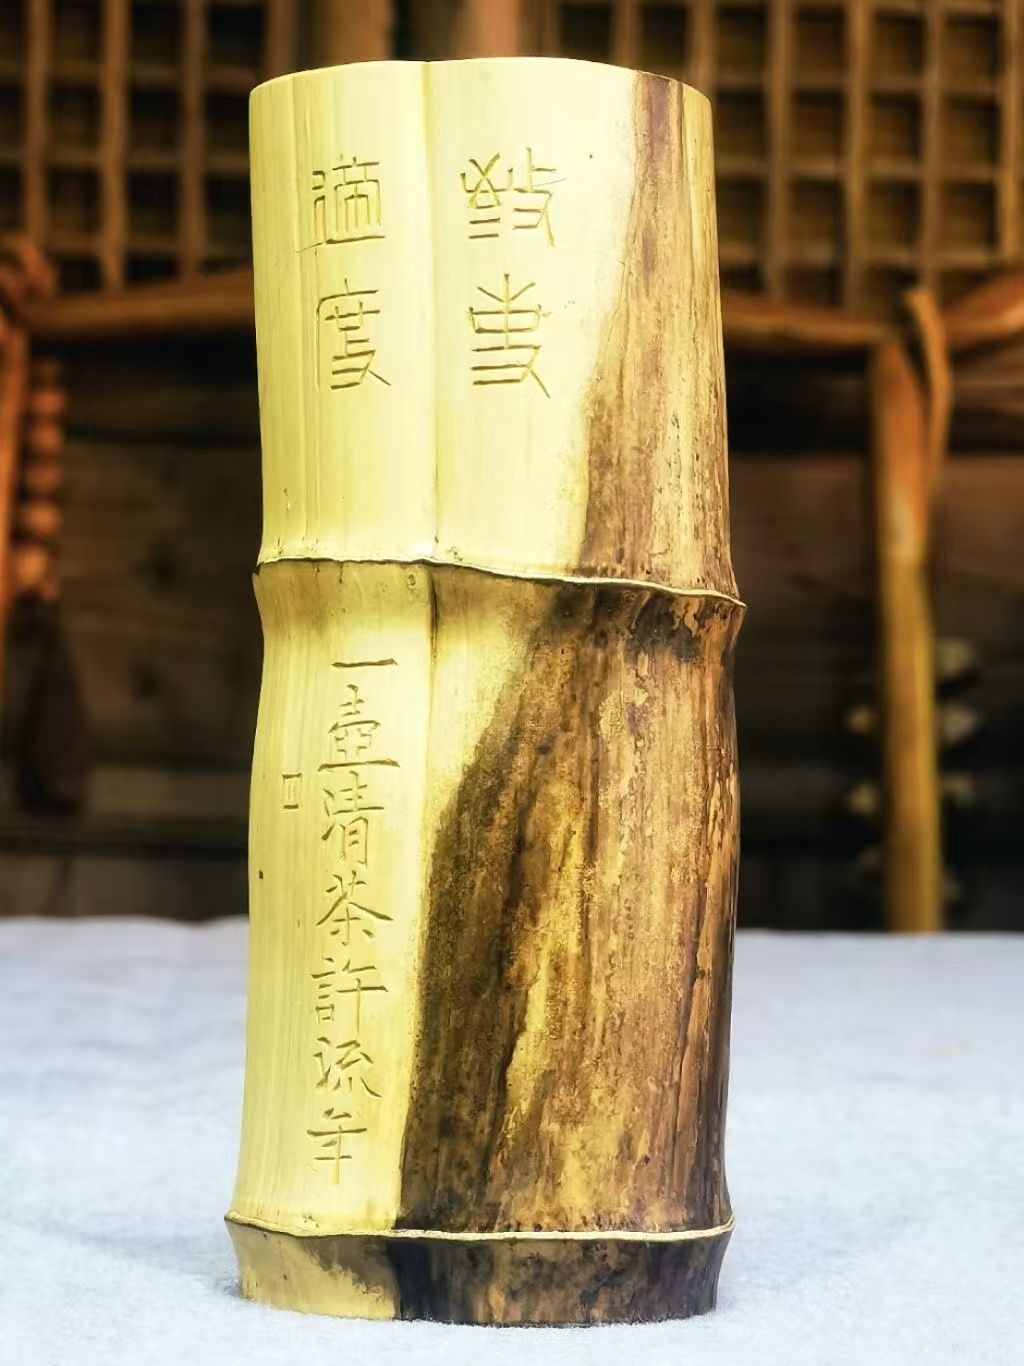 適度
一壺清茶許流年